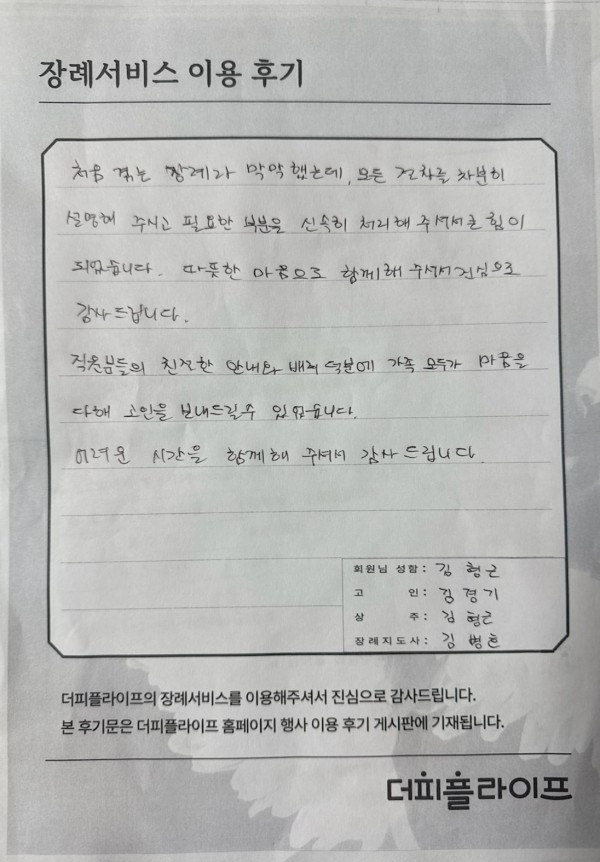 장례서비스 이용 후기
처음 겪는 장례라 막막했는데, 모든 절차를 차분히
설명해 주시고 필요한 부분을 신속히 처리해 주셔서 큰 힘이
되었습니다. 따뜻한 마음으로 함께해 주셔서 진심으로
감사드립니다.
직원분들의 친절한 안내와 배려 덕분에 가족 모두가 마음을
다해 고인을 보내드릴 수 있었습니다.
어려운 시간을 함께해 주셔서 감사드립니다.
회원님 성함: 김형근
고 인: 김경기
상 주: 김형근
장례지도사: 김병훈
더피플라이프의 장례서비스를 이용해주셔서 진심으로 감사드립니다.
본 후기문은 더피플라이프 홈페이지 행사 이용 후기 게시판에 기재됩니다.
더피플라이프